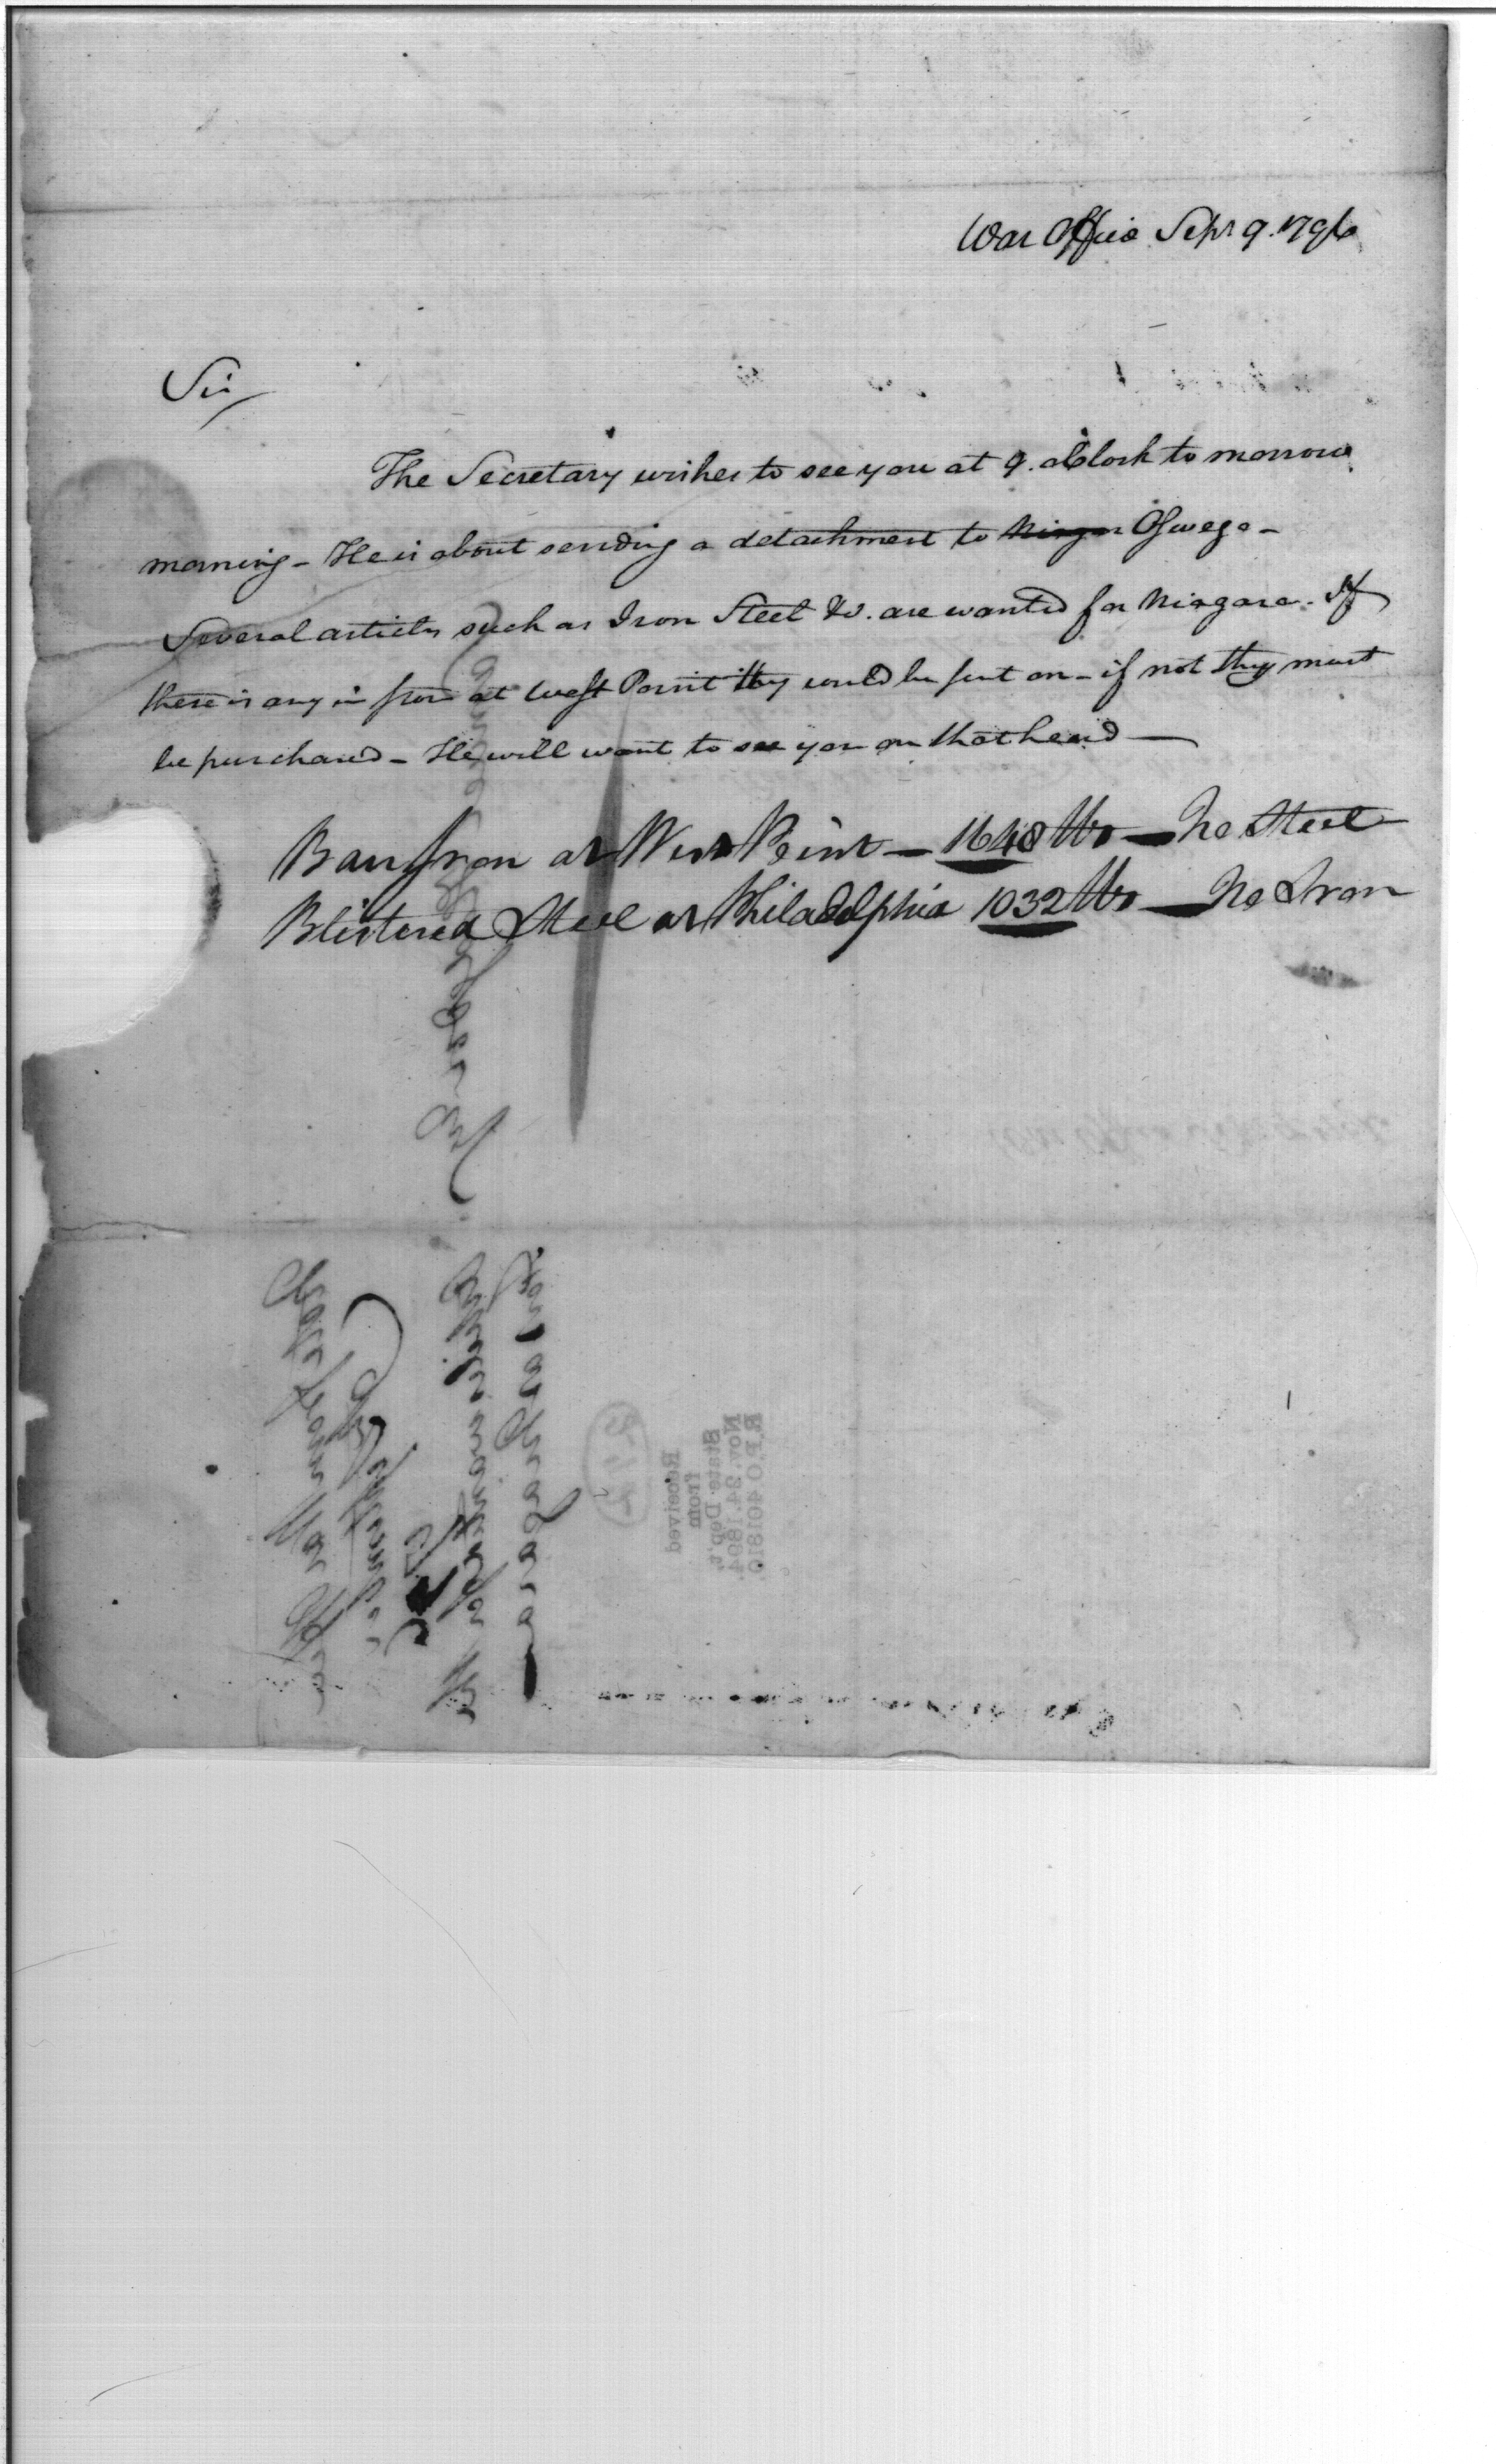 War Office Sepr 9. 1796
Sir
The Secretary wishes to see you at 9. oClock to morrow
morning - He is about sending a detachment to Niagar Oswego -
Several articles such as Iron Steel &c. are wanted for Niagara. If
there is any in store at West Point they could be sent on - if not they must
be purchased - He will want to see you on that head —
Barr Iron at West Point — 1648 lbs — No Steel
Blistered Steel at Philadelphia 1032 lbs — No Iron
Note from War Office
Received
from
State Dep't,
Nov. 24, 1894.
R.P.O. 401810.